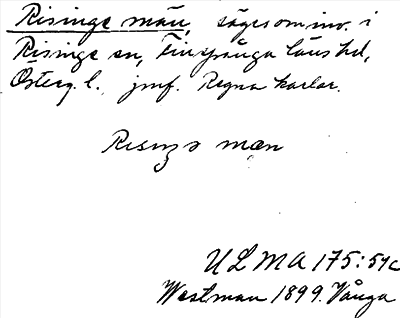 Risinge män, säges om inv. i
Risinge sn, Finspånga läns hd,
Österg. l. jmf. Regna karlar.
Risinge män
ULMA 175:51c
Westman 1899. Vånga